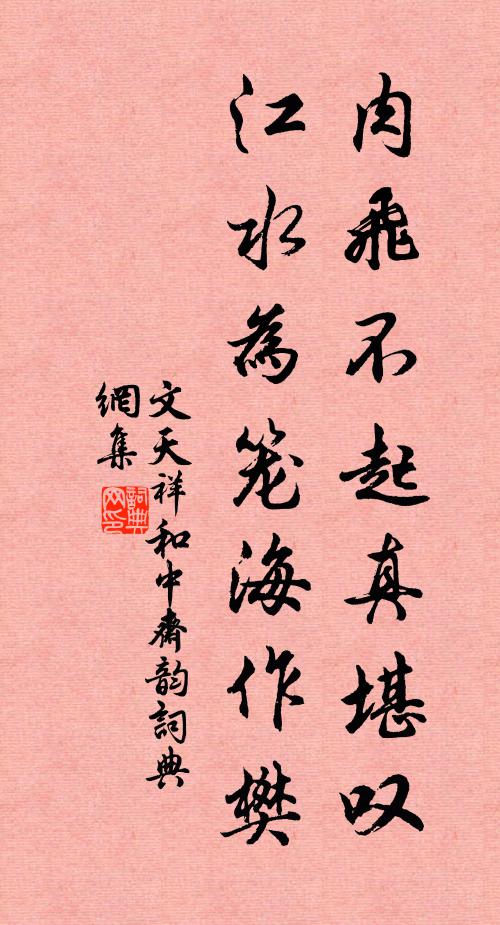 肉飛不起真堪叹
江水為笼海作樊
文天祥和中齋韵詞典
網集
詞典
网印